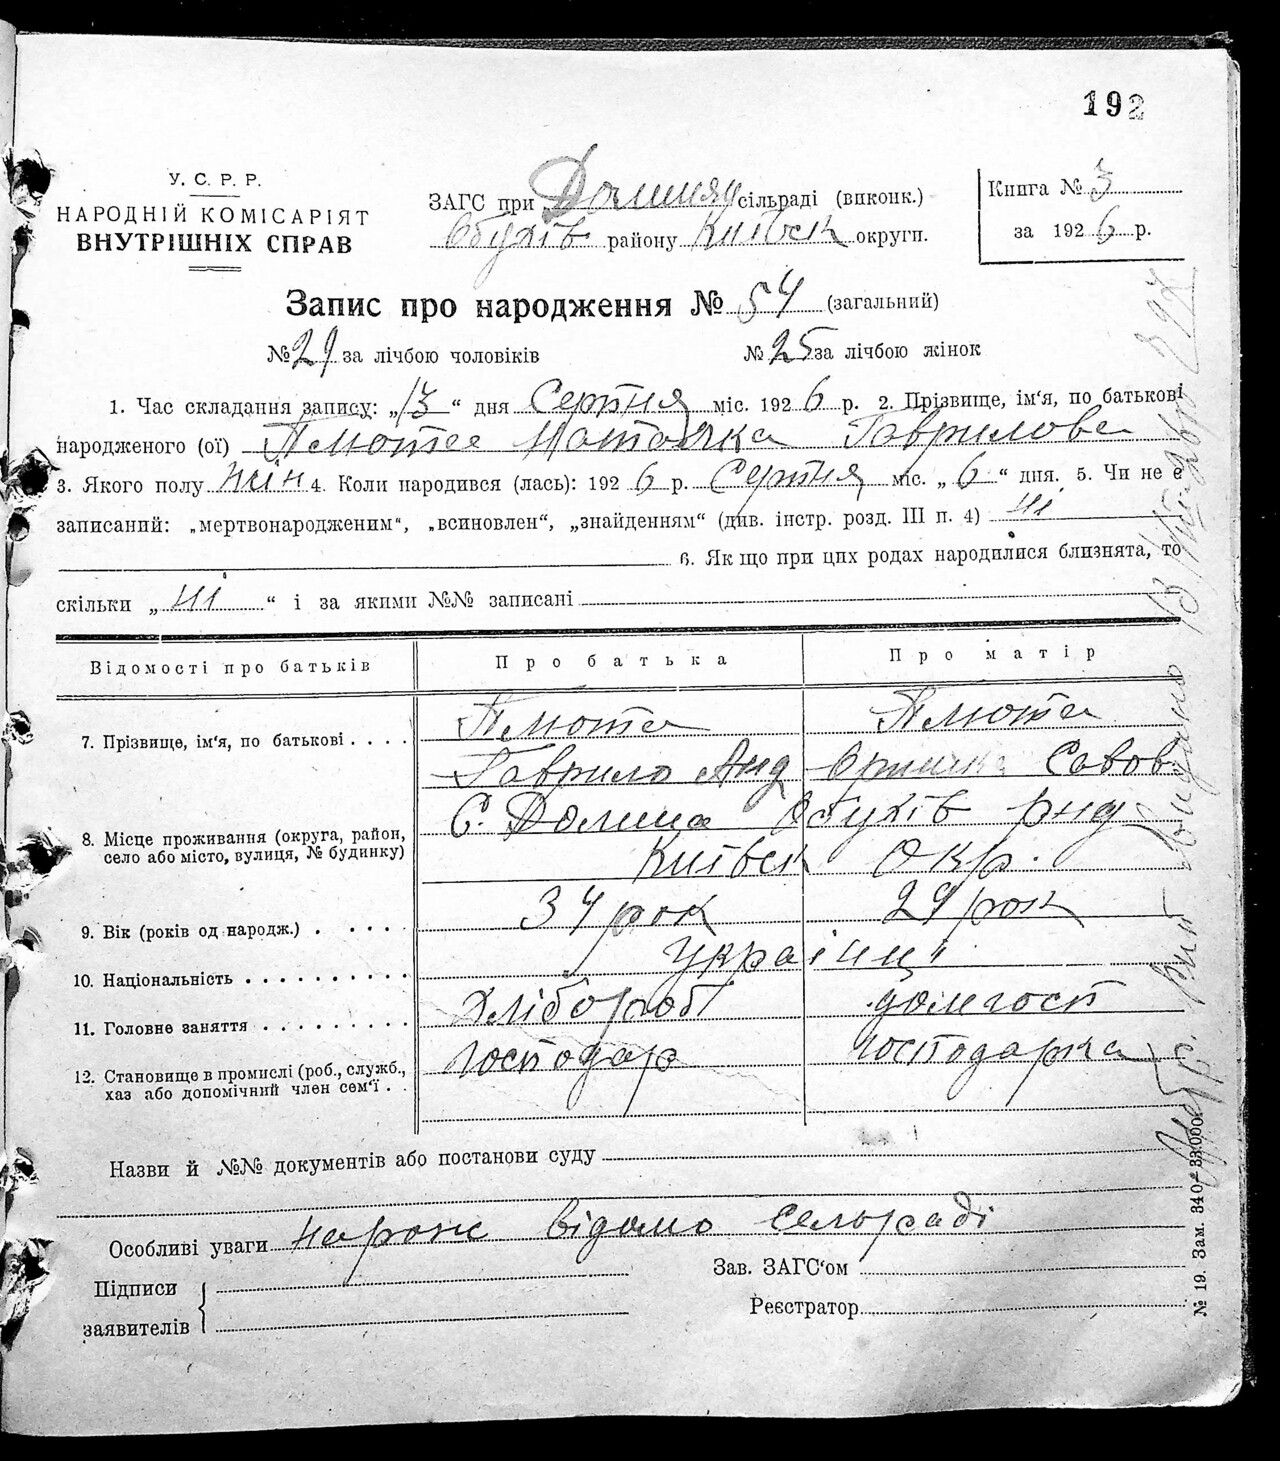 192
У. С. Р. Р.
НАРОДНІЙ КОМІСАРІЯТ
ВНУТРІШНІХ СПРАВ
ЗАГС при Долинян сільраді (виконк.)
Обухів району Київськ округи.
Книга № 3
за 1926 р.
Запис про народження № 54 (загальний)
№ 29 за лічбою чоловіків № 25 за лічбою жінок
1. Час складання запису: „13“ дня Серпня міс. 1926 р. 2. Прізвище, ім'я, по батькові
народженого (ої) Плюта Наталка Гаврилова
3. Якого полу жін 4. Коли народився (лась): 1926 р. Серпня міс. „6“ дня. 5. Чи не є
записаний: „мертвонародженим“, „всиновлен“, „знайденням“ (див. інстр. розд. III п. 4) ні
6. Як що при цих родах народилися близнята, то
скільки „ні“ і за якими №№ записані
Відомості про батьків Про батька Про матір
7. Прізвище, ім'я, по батькові . . . . Плюта Плюта
Гаврило Анд Савов
8. Місце проживання (округа, район,
село або місто, вулиця, № будинку) С. Долина Обухів
Київськ Окр.
9. Вік (років од народж.) . . . . . 34 рок 29 рок
10. Національність . . . . . . . . . . українці
11. Головне заняття . . . . . . . . . Хлібороб домгосп
12. Становище в промислі (роб., служб.,
хаз або допомічний член сем'ї . . господар господарка
Назви й №№ документів або постанови суду
Особливі уваги нарож відомо сельраді
Підписи
заявителів
Зав. ЗАГС'ом
Реєстратор
№ 19. Зам. 340–33.000